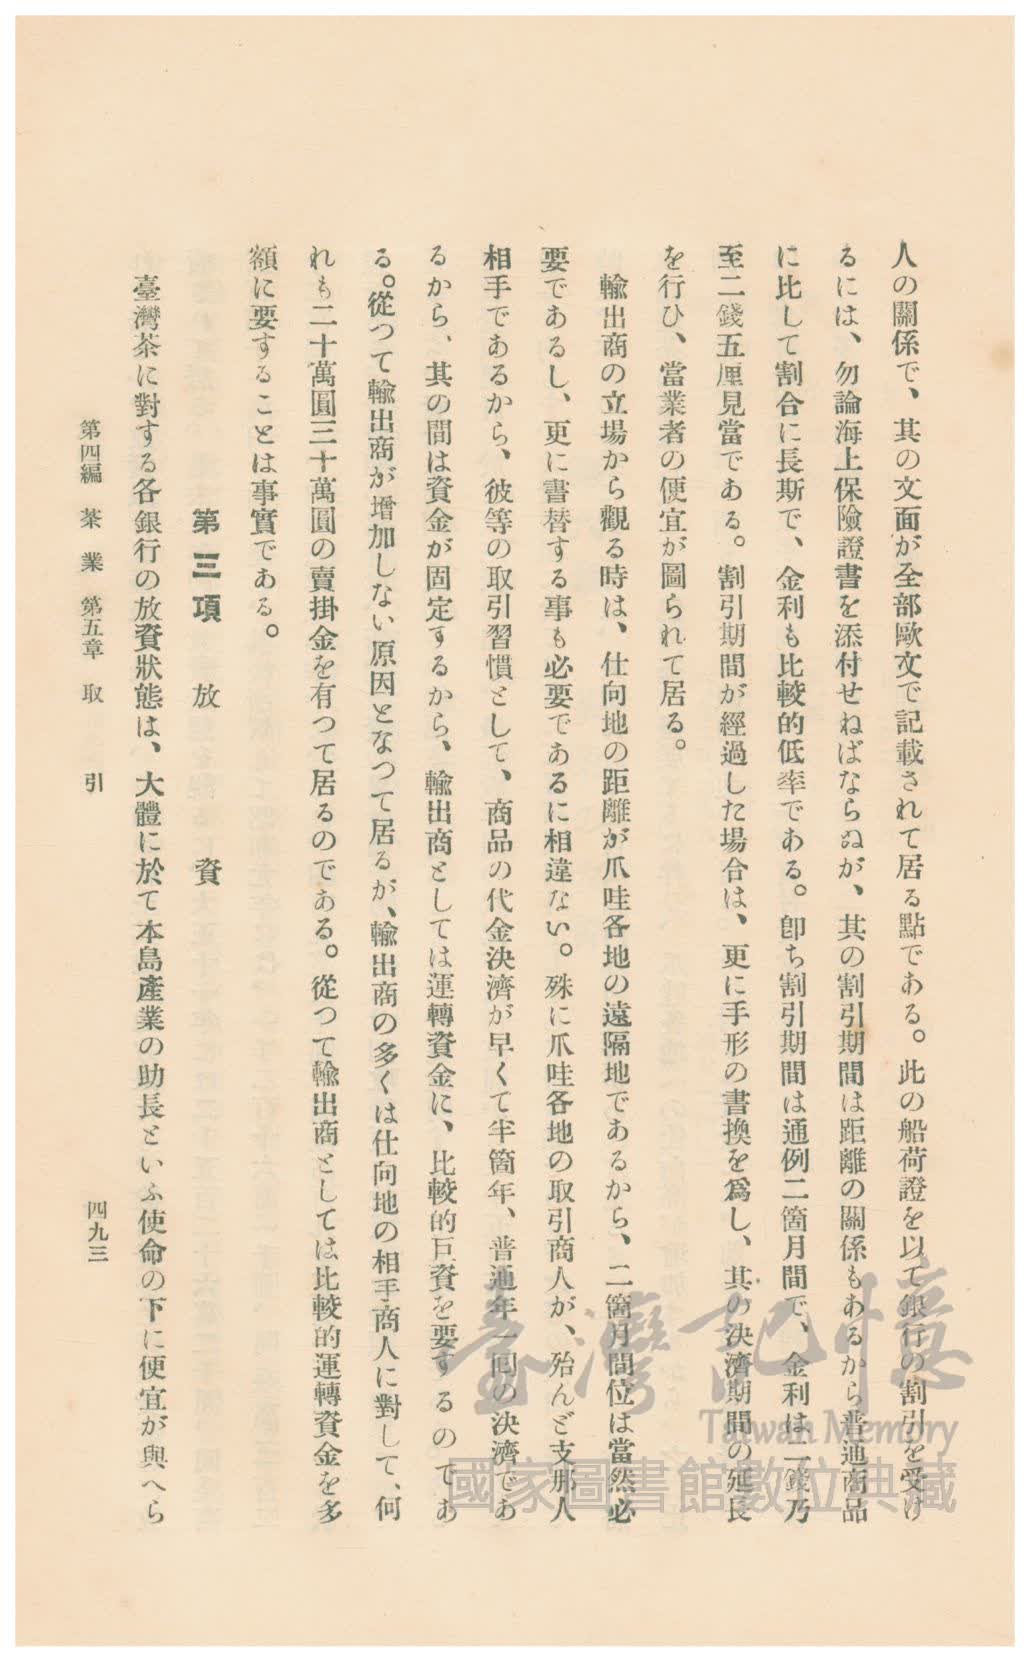 人の關係で、其の文面が全部歐文で記載されて居る點である。此の船荷證を以て銀行の割引を受け
るには、勿論海上保險證書を添付せねばならぬが、其の割引期間は距離の關係もあるから普通商品
に比して割合に長期で、金利も比較的低率である。卽ち割引期間は通例二箇月間で、金利は二錢乃
至二錢五厘見當である。割引期間が經過した場合は、更に手形の書換を爲し、其の決濟期間の延長
を行ひ、當業者の便宜が圖られて居る。
輸出商の立場から觀る時は、仕向地の距離が爪哇各地の遠隔地であるから、二箇月間位は當然必
要であるし、更に書替する事も必要であるに相違ない。殊に爪哇各地の取引商人が、殆んど支那人
相手であるから、彼等の取引習慣として、商品の代金決濟が早くて半箇年、普通年一回の決濟であ
るから、其の間は資金が固定するから、輸出商としては運轉資金に、比較的巨資を要するのであ
る。從つて輸出商が增加しない原因となつて居るが、輸出商の多くは仕向地の相手商人に對して、何
れも二十萬圓三十萬圓の賣掛金を有つて居るのである。從つて輸出商としては比較的運轉資金を多
額に要することは事實である。
第三項　放　資
臺灣茶に對する各銀行の放資狀態は、大體に於て本島產業の助長といふ使命の下に便宜が與へら
第四編　茶業　第五章　取引　四九三
臺灣記憶
Taiwan Memory
國家圖書館數位典藏